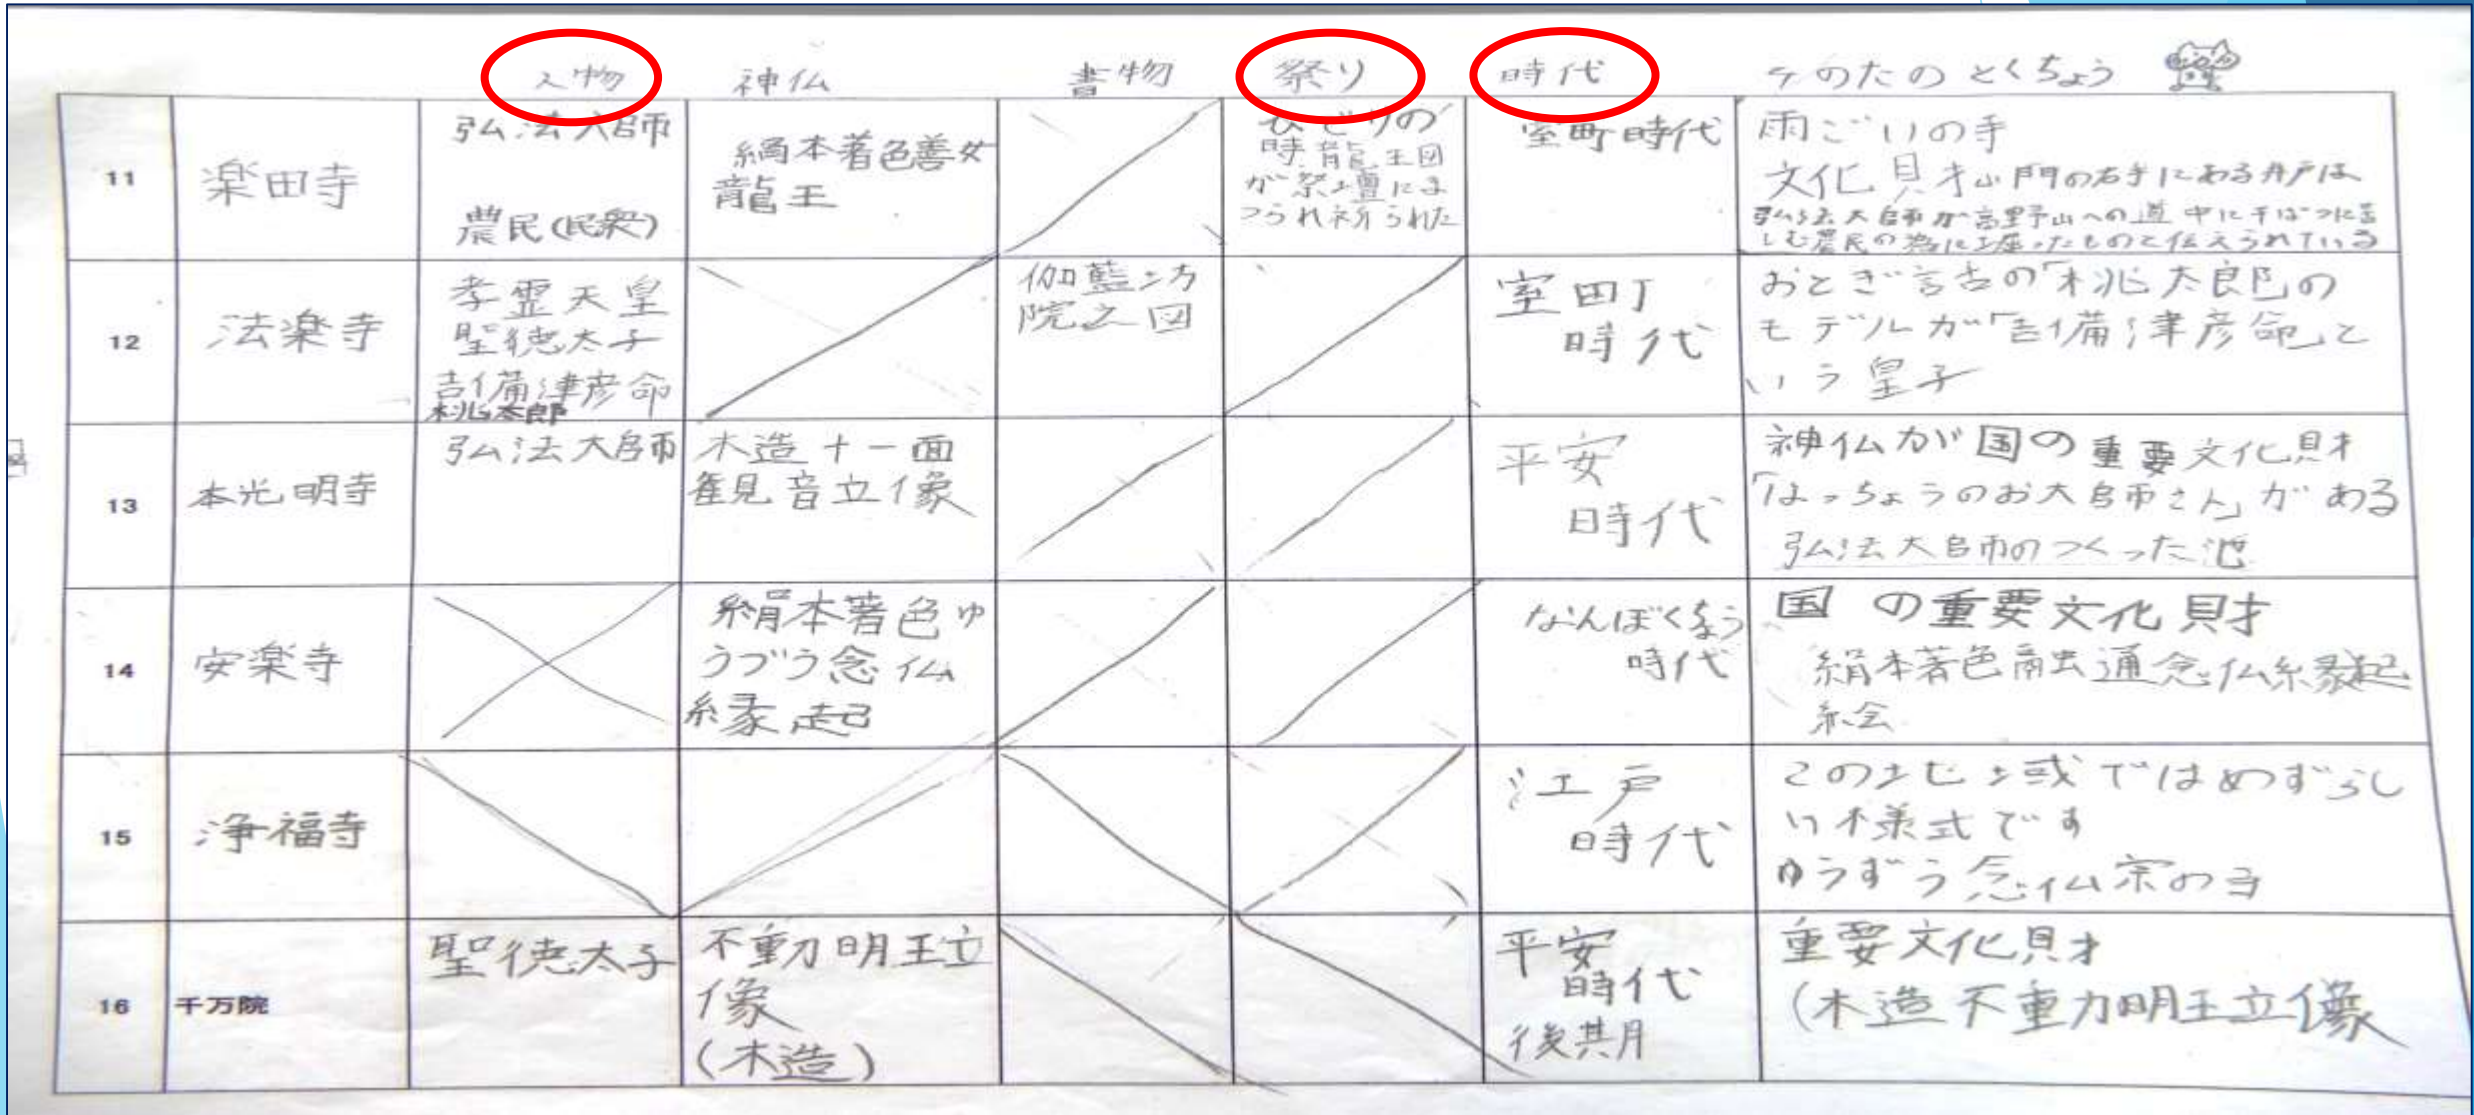 人物 神仏 書物 祭り 時代 そのたのとくちょう
11
楽田寺
弘法大師
農民(民衆)
絹本著色善女
龍王
ひでりの
時龍王図
が祭壇にま
つられ祈られた
室町時代
雨ごいの寺
文化財 山門の右手にある井戸は
弘法大師が高野山への道中に干ばつに苦
しむ農民の為に掘ったものと伝えられている
12
法楽寺
孝霊天皇
聖徳太子
吉備津彦命
桃太郎
伽藍坊
院之図
室町
時代
おとぎ話の「桃太郎」の
モデルが「吉備津彦命」と
いう皇子
13
本光明寺
弘法大師
木造十一面
観音立像
平安
時代
神仏が国の重要文化財
「はっちょうのお大師さん」がある
弘法大師のつくった池
14
安楽寺
絹本著色ゆ
うづう念仏
縁起
なんぼくちょう
時代
国の重要文化財
絹本著色融通念仏縁起
絵
15
浄福寺
江戸
時代
この地域ではめずらし
い様式です
ゆうずう念仏宗の寺
16
千万院
聖徳太子
不動明王立
像
(木造)
平安
時代
後期
重要文化財
(木造不動明王立像